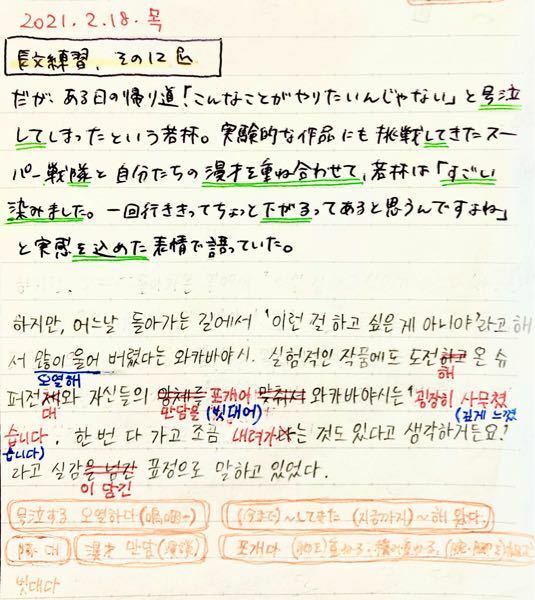 2021. 2. 18. 목
長文練習、その12
だが、ある日の帰り道「こんなことがやりたいんじゃない」と号泣
してしまったという若林。実験的な作品にも挑戦してきたスー
パー戦隊と自分たちの漫才を重ね合わせて、若林は「すごい
染みました。一回行ききってちょっと下がるってあると思うんですよね」
と実感を込めた表情で語っていた。
하지만, 어느날 돌아가는 길에서 '이런 걸 하고 싶은 게 아니야'라고 해
서 많이 울어 버렸다는 와카바야시. 실험적인 작품에도 도전하고 온 슈
오열해 해
퍼전체와 자신들의 맞춰서 와카바야시는 '굉장히 사무쳤
대 만담을 포개어 (빗대어) (깊게 느꼈
습니다. 한 번 다 가고 조금 내려가는 것도 있다고 생각하거든요?'
습니다)
라고 실감을 넘긴 표정으로 말하고 있었다.
이 담긴
号泣する 오열하다(嗚咽-) (今まで)~してきた (지금까지)~해 왔다.
隊 대 漫才 만담(漫談) 포개다
빗대다